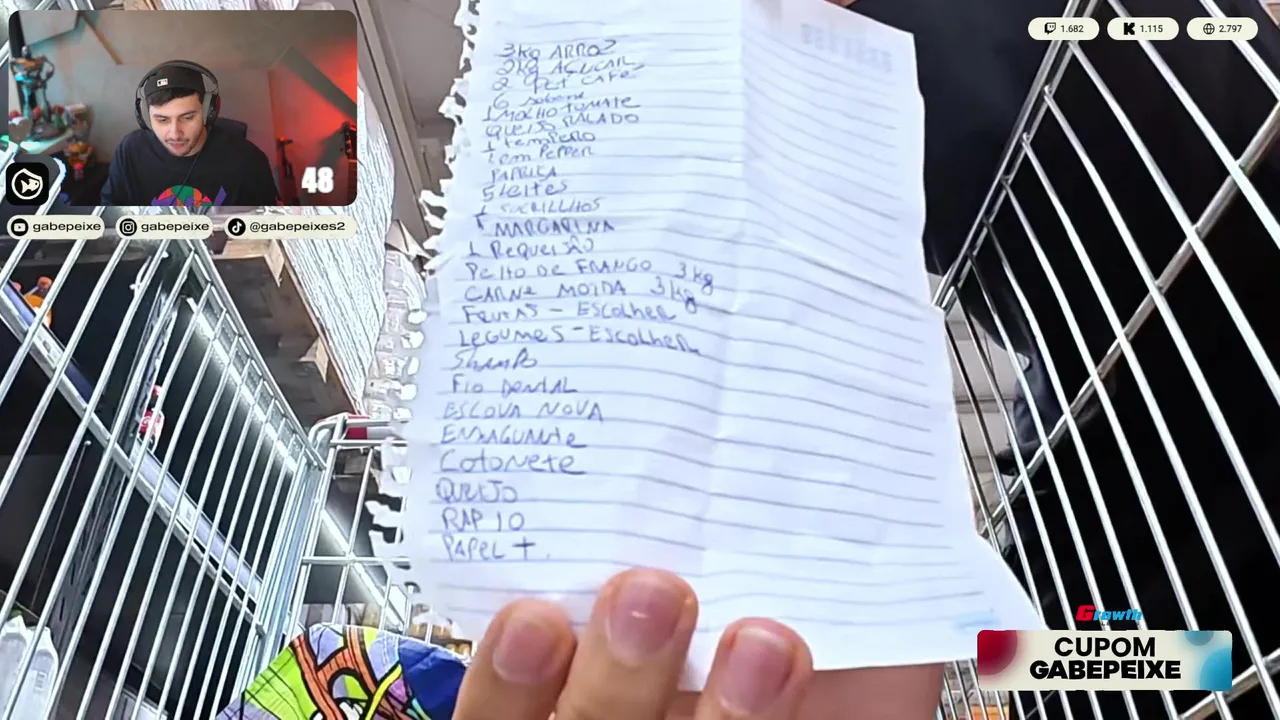 1.682
1.115
2.797
48
gabepeixe
gabepeixe
@gabepeixes2
3kg ARROZ
2kg AÇUCAR
2 CAFÉ
6
1 MOLHO TOMATE
QUEIJO RALADO
1 temPERO
Lem PEPPER
PAPRICA
5 LeiteS
1 SUCRILLHOS
1 MARGARINA
1 RequeiJÃO
Peito De FRANGO 3 kg
CARNe MOIDA 3 kg
FRUTAS - ESCOLHER
LEGUMES - ESCOLHER
SHAMPO
FIO DENTAL
ESCOVA NOVA
ENXAGUANte
COTONETE
QUEIJO
RAP 10
PAPEL +.
Growth
CUPOM
GABEPEIXE